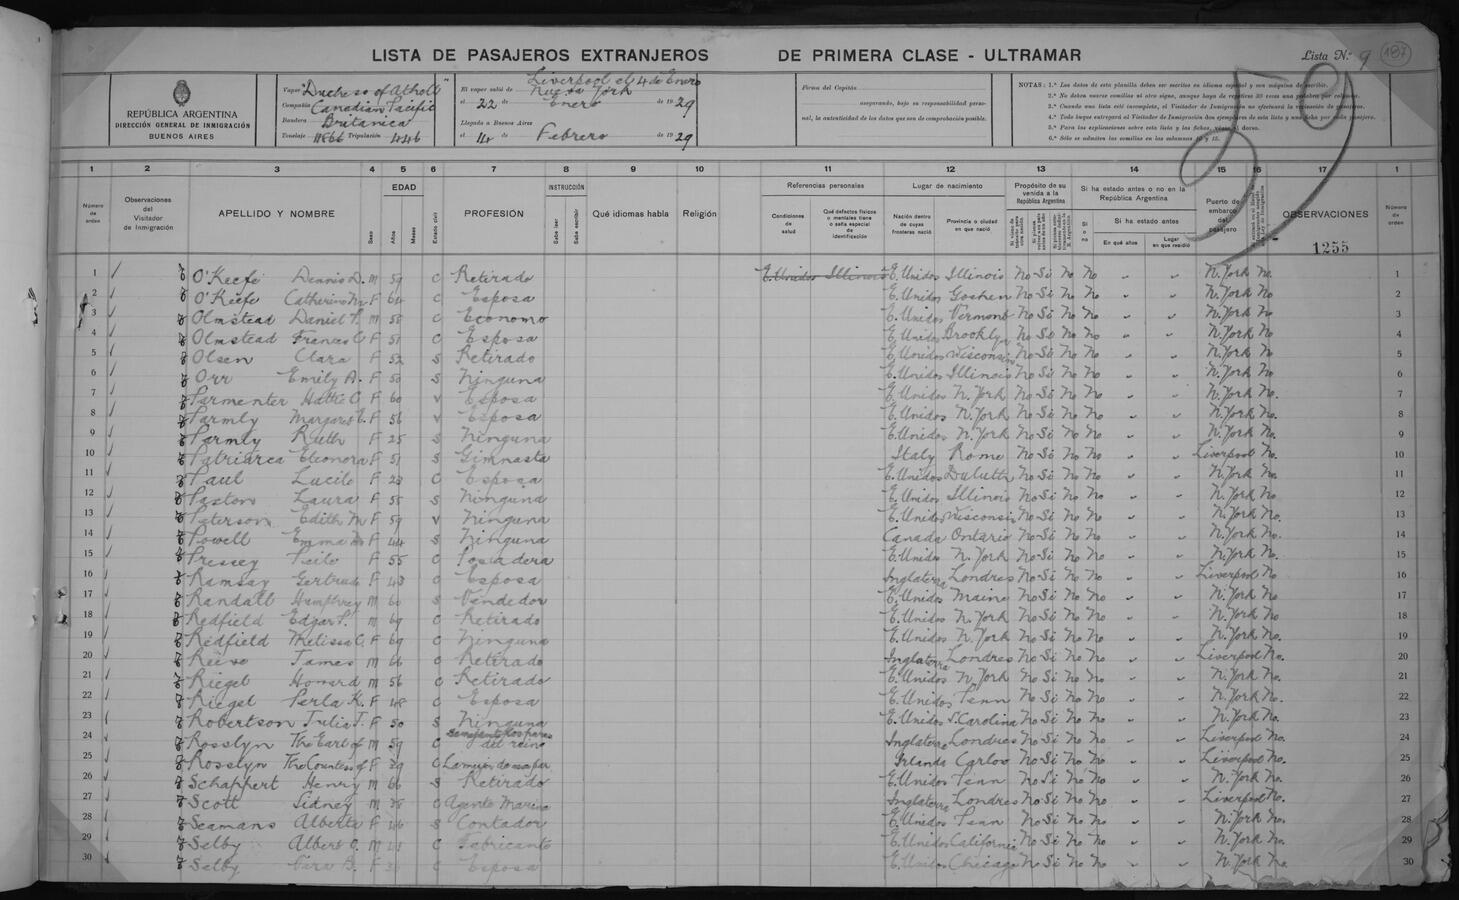 LISTA DE PASAJEROS EXTRANJEROS DE PRIMERA CLASE - ULTRAMAR Lista N.° 9 187
59
REPÚBLICA ARGENTINA
DIRECCIÓN GENERAL DE INMIGRACIÓN
BUENOS AIRES
Vapor Duchess of Atholl
Compañía Canadian Pacific
Bandera Britanica
Tonelaje 11866 Tripulación 446
El vapor salió de Liverpool el 4 de Enero
Nueva York
el 22 de Enero de 1929
Llegado a Buenos Aires
el 14 de Febrero de 1929
Firma del Capitán
asegurando, bajo su responsabilidad perso-
nal, la autenticidad de los datos que son de comprobación posible.
NOTAS: 1.ª Los datos de esta planilla deben ser escritos en idioma español y con máquina de escribir.
1 2 3 4 5 6 7 8 9 10 11 12 13 14 15 16 17
Número de orden
Observaciones del Visitador de Inmigración
APELLIDO Y NOMBRE
Sexo
EDAD
Años
Meses
Estado civil
PROFESIÓN
INSTRUCCIÓN
Sabe leer
Sabe escribir
Qué idiomas habla
Religión
Referencias personales
Condiciones de salud
Qué defectos físicos o mentales tiene o seña especial de identificación
Lugar de nacimiento
Nación dentro de cuyas fronteras nació
Provincia o ciudad en que nació
Propósito de su venida a la República Argentina
Si ha estado antes o no en la República Argentina
Si o no
Si ha estado antes
En qué años
Lugar en que residió
Puerto de embarco del pasajero
OBSERVACIONES
1255
Número de orden
1 O'Keefe Dennis D. M 59 C Retirado E. Unidos Illinois E. Unidos Illinois No Si No No " " N. York No. 1
2 O'Keefe Catherine M. F 64 C Esposa E. Unidos Goshen No Si No No " " N. York No 2
3 Olmstead Daniel P. M 58 C Economo E. Unidos Vermont No Si No No " " N. York No 3
4 Olmstead Frances C F 51 C Esposa E. Unidos Brooklyn No Si No No " " N. York No 4
5 Olsen Clara F 52 S Retirado E. Unidos Wisconsin No Si No No " " N. York No 5
6 Orr Emily A. F 50 S Ninguna E. Unidos Illinois No Si No No " " N. York No 6
7 Parmenter Hattie C F 60 V Esposa E. Unidos N. York No Si No No " " N. York No. 7
8 Parmly Margaret E. F 56 V Esposa E. Unidos N. York No Si No No " " N. York No. 8
9 Parmly Ruth F 25 S Ninguna E. Unidos N. York No Si No No " " N. York No. 9
10 Patriarca Eleonora F 51 S Gimnasta Italy Rome No Si No No " " Liverpool No. 10
11 Paul Lucile F 23 C Esposa E. Unidos Duluth No Si No No " " N. York No. 11
12 Paxton Laura F 55 S Ninguna E. Unidos Illinois No Si No No " " N. York No 12
13 Peterson Edith M F 59 V Ninguna E. Unidos Wisconsin No Si No No " " N. York No. 13
14 Powell Emma F 44 S Ninguna Canada Ontario No Si No No " " N. York No. 14
15 Pressey F 55 C Posadera E. Unidos N. York No Si No No " " N. York No. 15
16 Ramsay Gertrude F 43 C Esposa Inglaterra Londres No Si No No " " Liverpool No 16
17 Randall Humphrey M 60 S Vendedor E. Unidos Maine No Si No No " " N. York No 17
18 Redfield Edgar P. M 69 C Retirado E. Unidos N. York No Si No No " " N. York No 18
19 Redfield Melissa C. F 69 C Ninguna E. Unidos N. York No Si No No " " N. York No 19
20 Reeve James M 66 C Retirado Inglaterra Londres No Si No No " " Liverpool No. 20
21 Riegel Howard M 56 C Retirado E. Unidos N. York No Si No No " " N. York No. 21
22 Riegel Perla K. F 48 C Esposa E. Unidos Penn No Si No No " " N. York No. 22
23 Robertson Julia T. F 50 S Ninguna E. Unidos S. Carolina No Si No No " " N. York No. 23
24 Rosslyn The Earl of M 59 C del reino Inglaterra Londres No Si No No " " Liverpool No. 24
25 Rosslyn The Countess of F 39 C Irlanda Carlow No Si No No " " Liverpool No. 25
26 Schappert Henry M 66 S Retirado E. Unidos Penn No Si No No " " N. York No. 26
27 Scott Sidney M 38 C Agente Marino Inglaterra Londres No Si No No " " Liverpool No. 27
28 Seamans Alberta F 46 S Contador E. Unidos Penn No Si No No " " N. York No. 28
29 Selby Albert O. M C Fabricante E. Unidos California No Si No No " " N. York No. 29
30 Selby B. F C Esposa E. Unidos Chicago No Si No No " " N. York No. 30